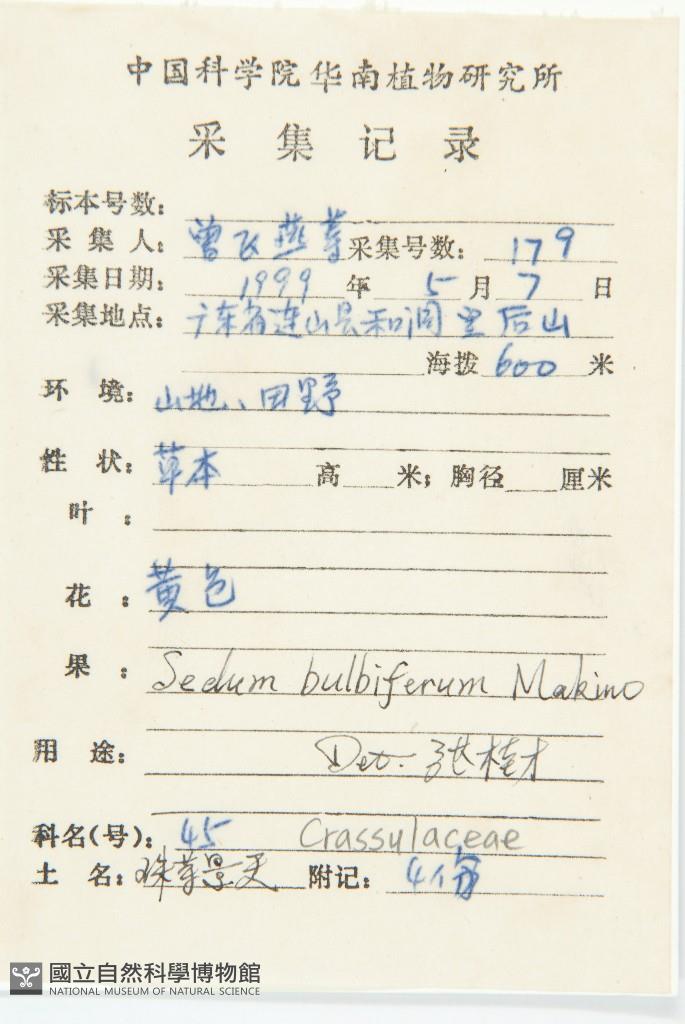 中国科学院华南植物研究所
采集记录
标本号数：
采集人：曾飞燕等 采集号数：179
采集日期：1999年5月7日
采集地点：广东省连山县和洞 后山
海拨 600 米
环境：山地、田野
性状：草本 高 米；胸径 厘米
叶：
花：黄色
果：Sedum bulbiferum Makino
用途：Det. 张桂才
科名(号)：45 Crassulaceae
土名：珠芽景天 附记：4份
國立自然科學博物館
NATIONAL MUSEUM OF NATURAL SCIENCE